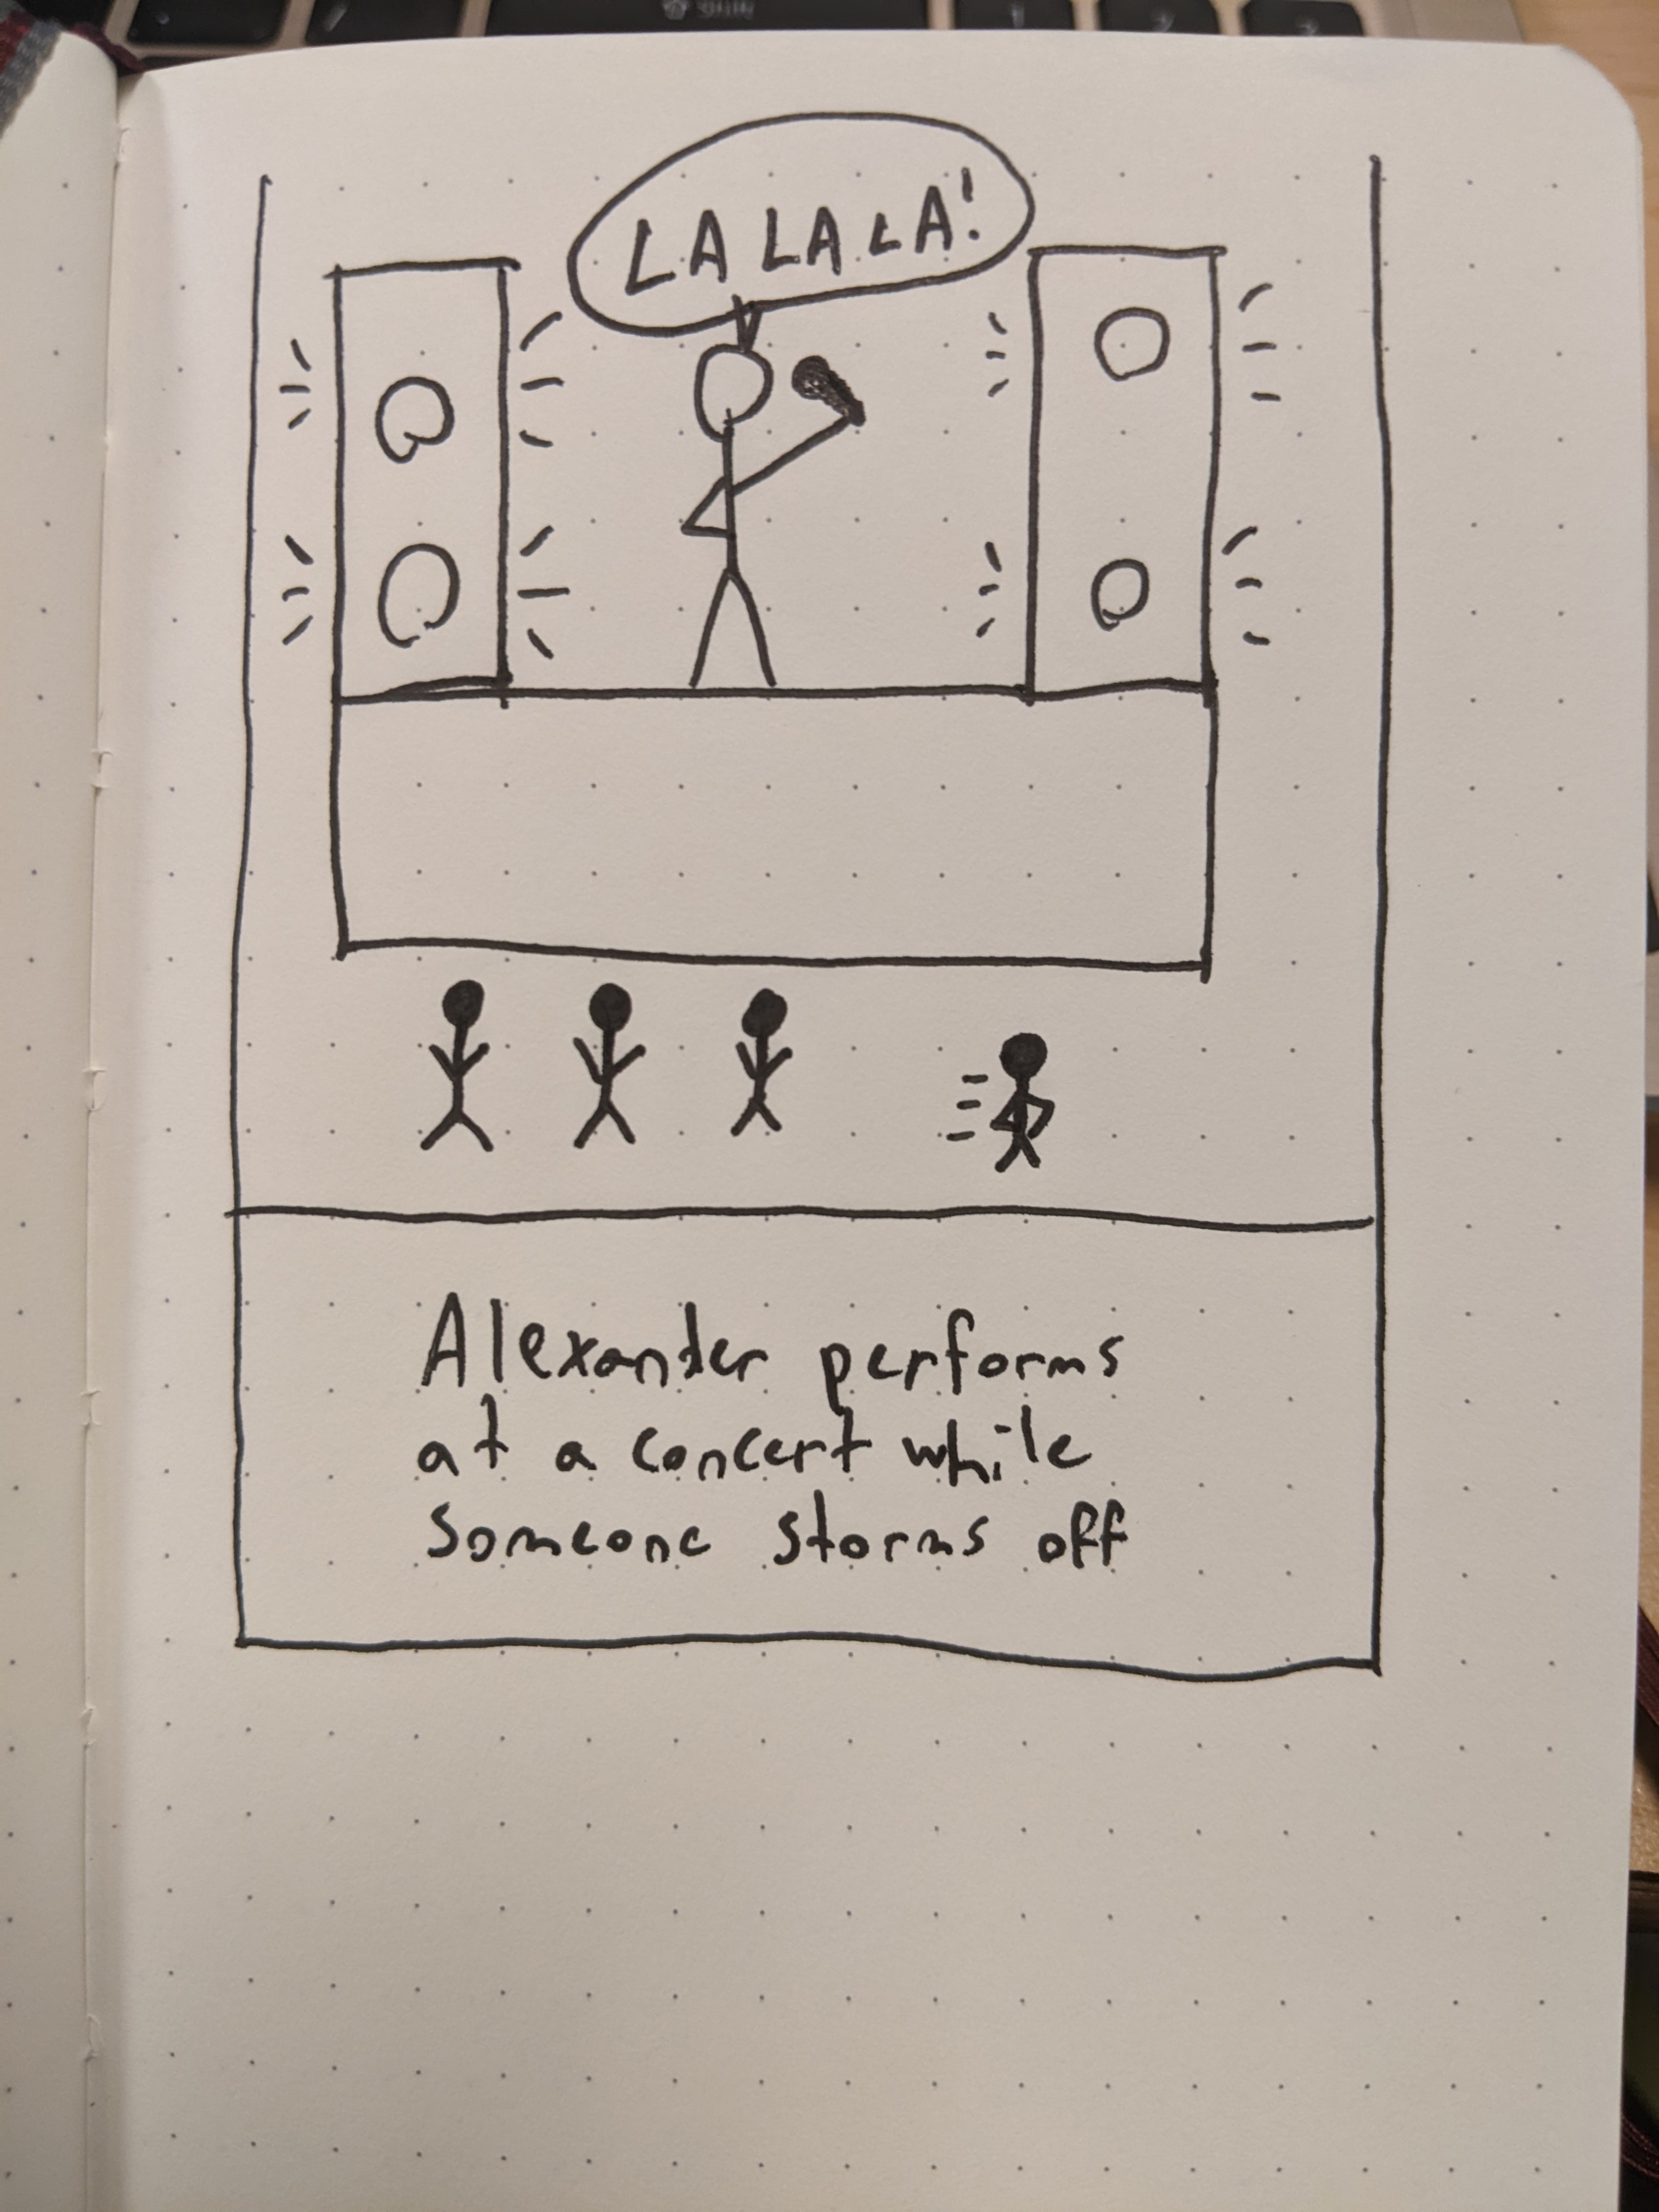 LA LA LA!
Alexander performs
at a concert while
someone storms off